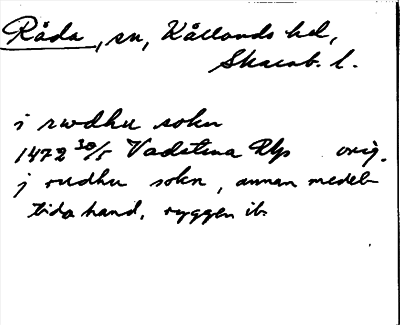 Råda, sn, Kållands hd,
Skarab. l.
i rwdhu sokn
1472 30/5 Vadstena Up orig.
j rudhu sokn, annan medel-
tida hand, ryggen ib.